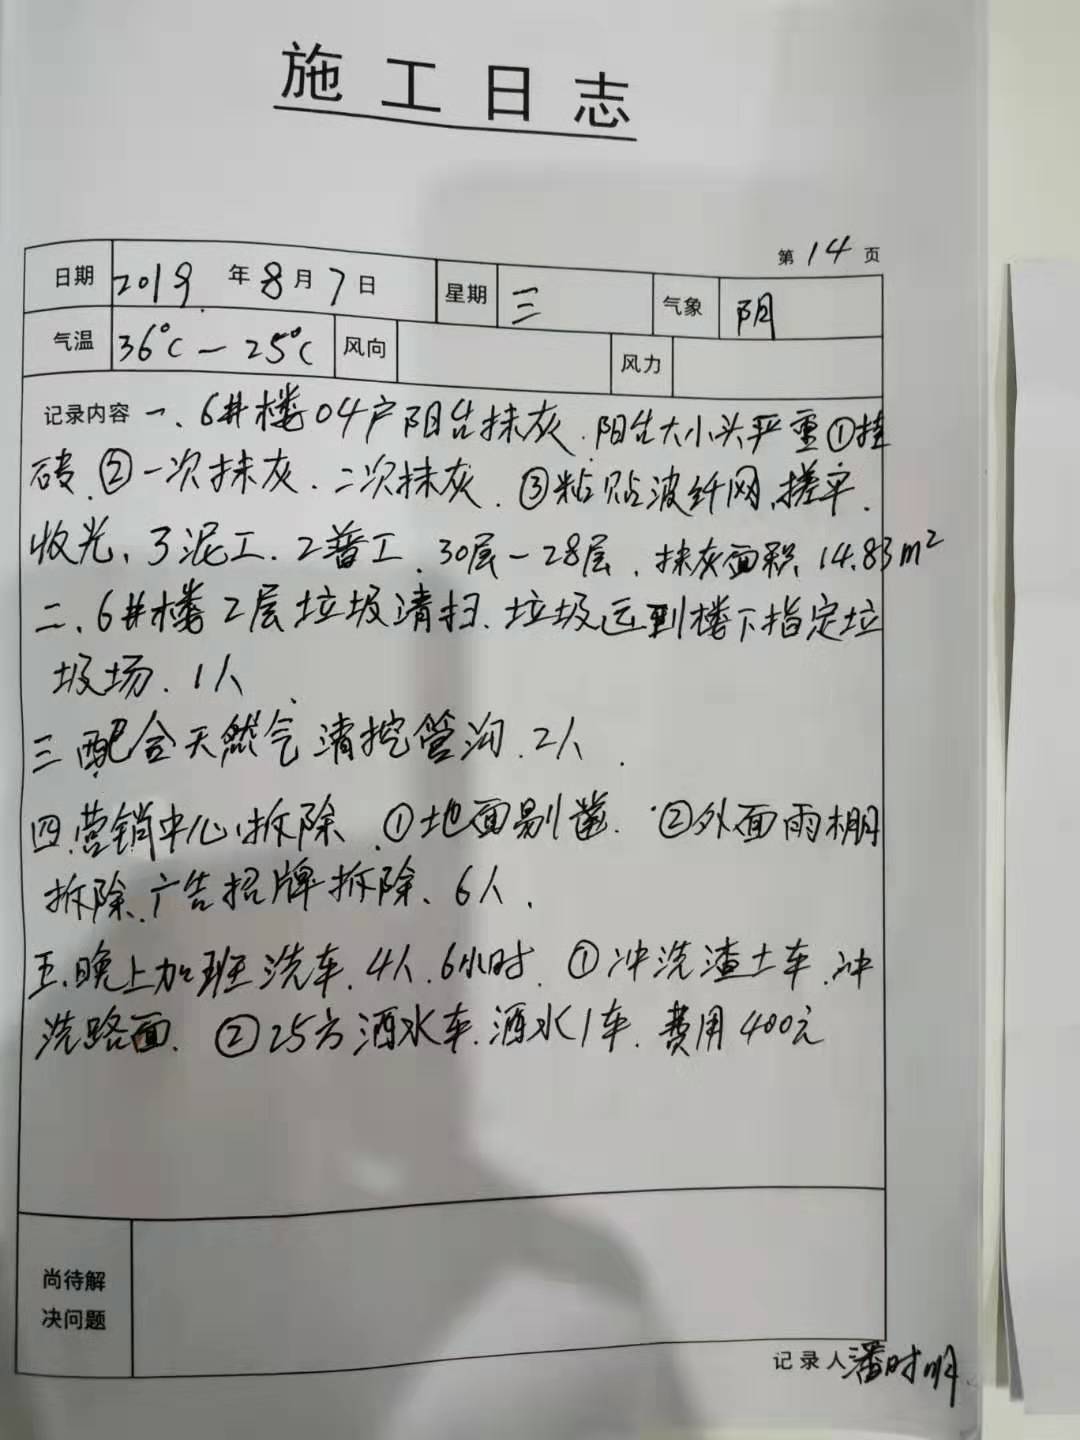 施工日志
第 14 页
日期 2019 年 8 月 7 日 星期 三 气象 阴
气温 36℃ — 25℃ 风向 风力
记录内容 一、6#楼04户阳台抹灰.阳台大小头严重①挂
砖.②一次抹灰.二次抹灰.③粘贴波纤网,搓平.
收光、3泥工.2普工.30层—28层.抹灰面积14.83m²
二、6#楼2层垃圾清扫.垃圾运到楼下指定垃
圾场.1人
三配合天然气清挖管沟.2人.
四.营销中心拆除.①地面剔凿.②外面雨棚
拆除.广告招牌拆除、6人.
五.晚上加班洗车.4人.6小时.①冲洗渣土车.冲
洗路面.②25方洒水车.洒水1车.费用400元
尚待解
决问题
记录人潘时明